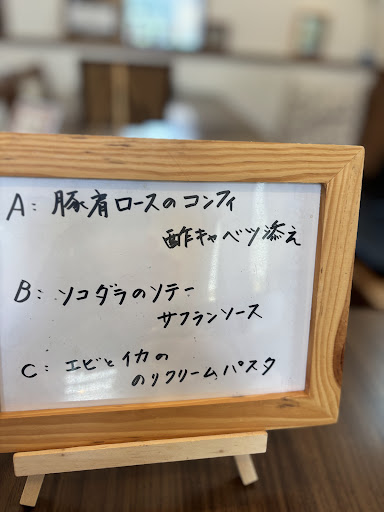 A: 豚肩ロースのコンフィ
酢キャベツ添え
B: ソコダラのソテー
サフランソース
C: エビとイカの
のりクリームパスタ